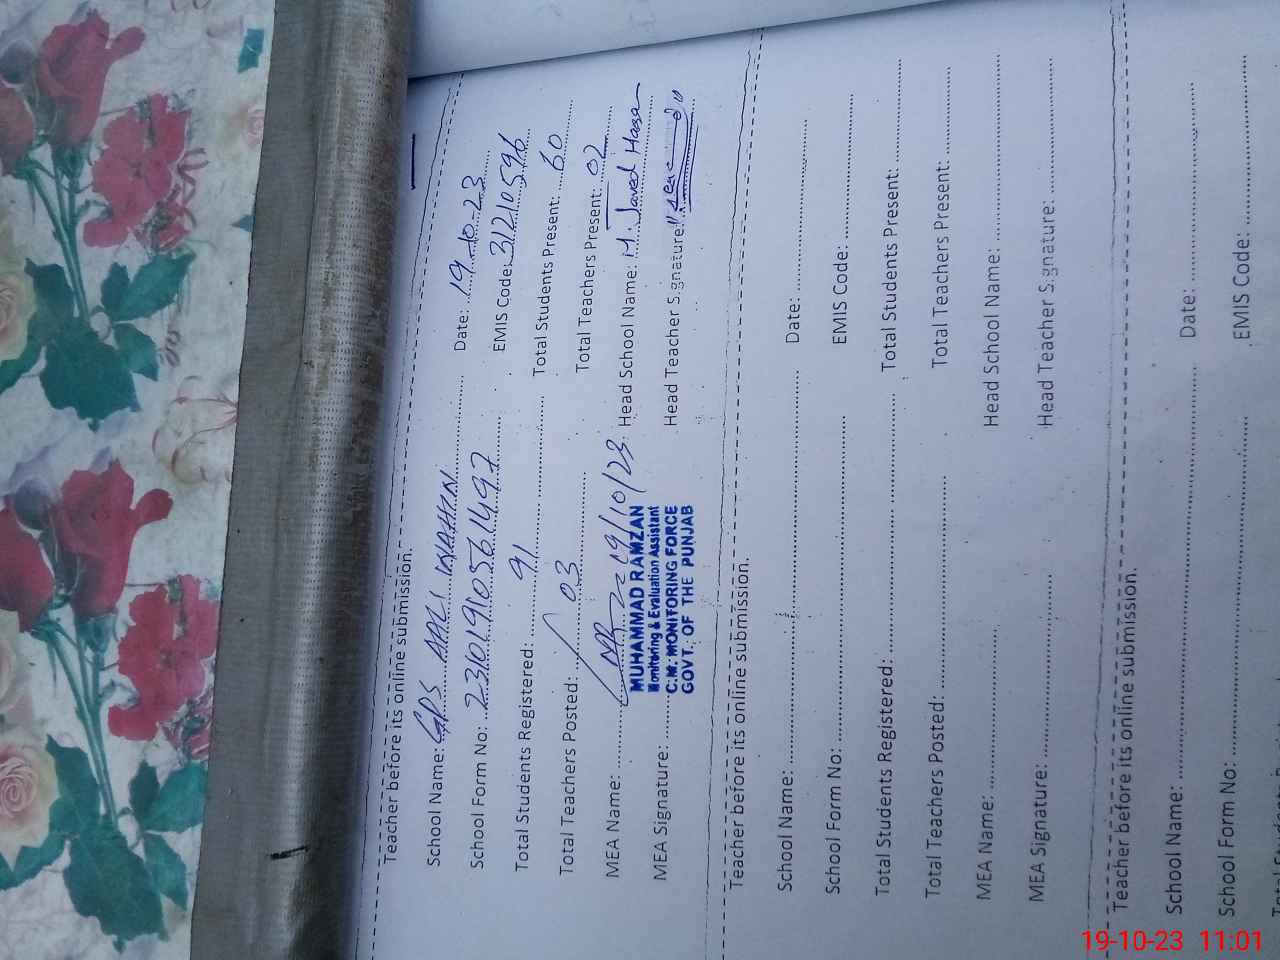 Teacher before its online submission.
School Name: GPS AALI WAHIN Date: 19-10-23
School Form No: 23101910561497 EMIS Code: 31210596
Total Students Registered: 91 Total Students Present: 60
Total Teachers Posted: 03 Total Teachers Present: 02
MEA Name: 19/10/23 Head School Name: M. Javed Hasan
MEA Signature: Head Teacher Signature:
MUHAMMAD RAMZAN
Monitoring & Evaluation Assistant
C.M. MONITORING FORCE
GOVT. OF THE PUNJAB
Teacher before its online submission.
School Name: Date:
School Form No: EMIS Code:
Total Students Registered: Total Students Present:
Total Teachers Posted: Total Teachers Present:
MEA Name: Head School Name:
MEA Signature: Head Teacher Signature:
Teacher before its online submission.
School Name: Date:
School Form No: EMIS Code:
19-10-23 11:01